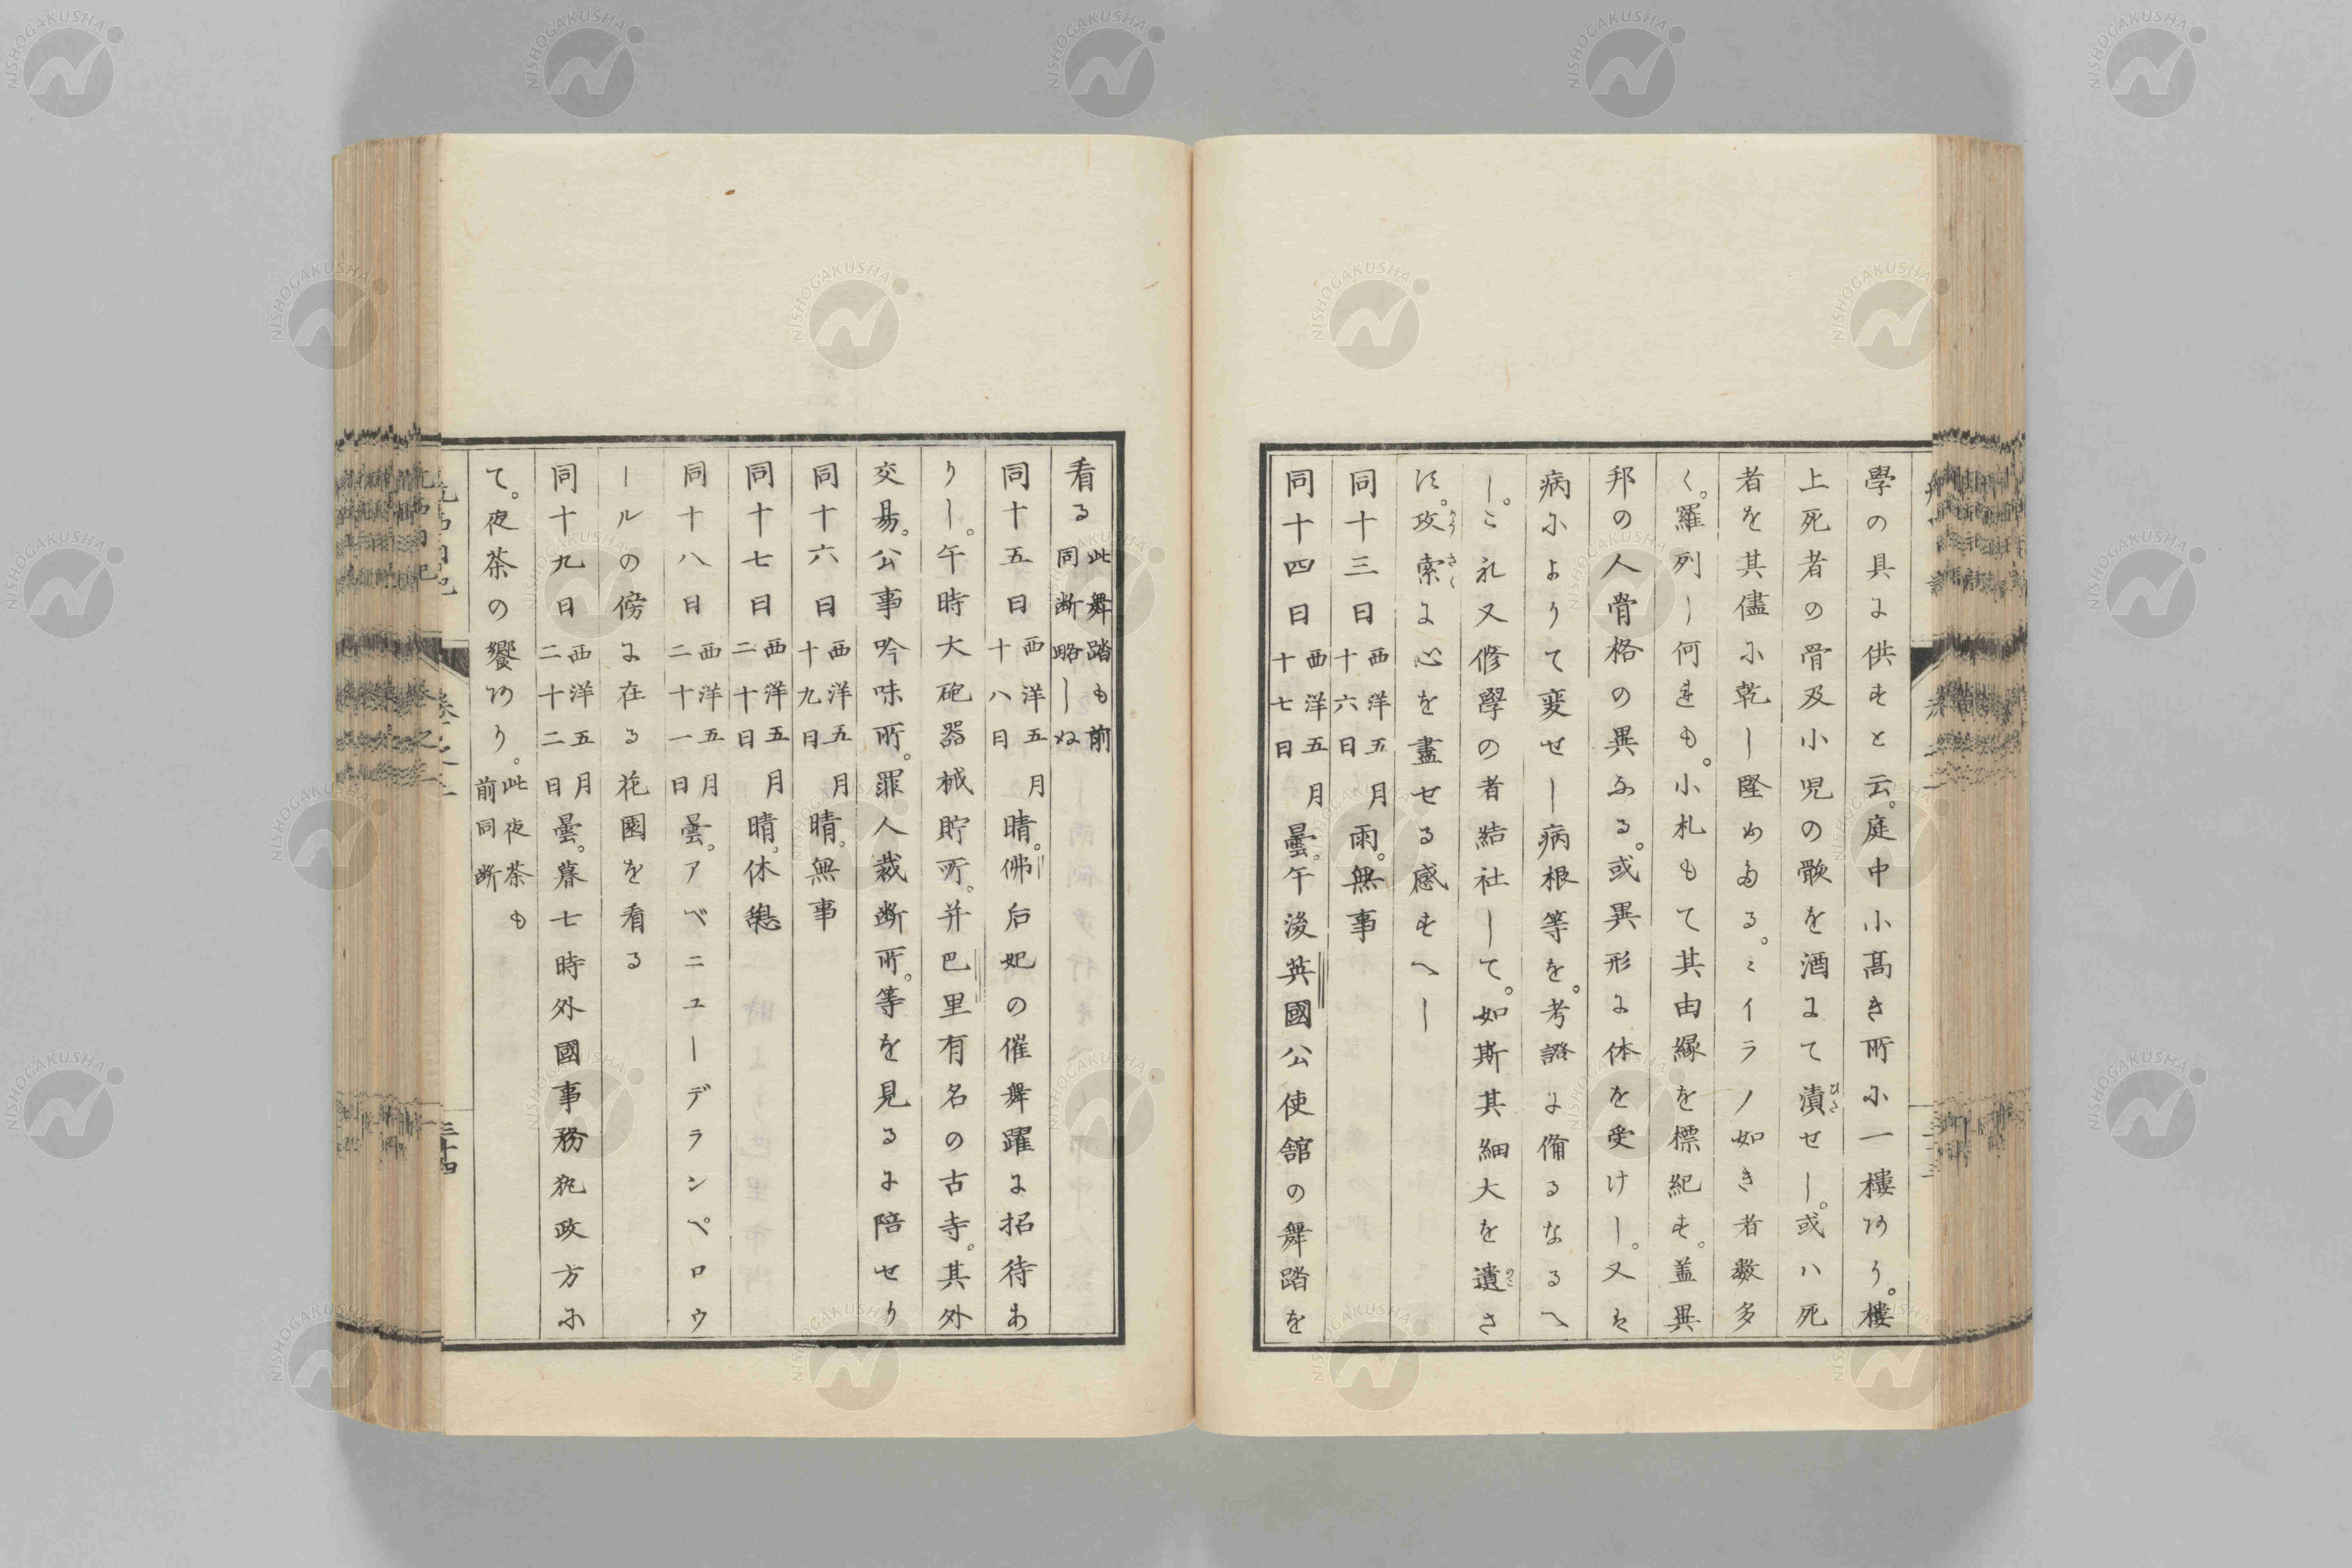 學の具に供すと云。庭中小髙き所に一樓あり。樓
上死者の骨及小児の骸を酒にて漬せし。或ハ死
者を其儘に乾し堅めたる。ミイラノ如き者數多
く。羅列し何れも。小札もて其由縁を標紀す。蓋異
邦の人骨格の異なる。或異形に体を受けし。又は
病によりて変せし病根等を。考證に備るなるへ
し。これ又修學の者結社して。如斯其細大を遺さ
す。攻索に心を盡せる感すへし
同十三日西洋五月十六日雨。無事
同十四日西洋五月十七日曇。午後英國公使舘の舞踏を
看る此舞踏も前同断略しぬ
同十五日西洋五月十八日晴。佛后妃の催舞躍に招待あ
りし。午時大砲器械貯所。并巴里有名の古寺。其外
交易。公事吟味所。罪人裁断所。等を見るに陪せり
同十六日西洋五月十九日晴。無事
同十七日西洋五月二十日晴。休憩
同十八日西洋五月二十一日曇。アベニユーデランペロウ
ールの傍に在る花園を看る
同十九日西洋五月二十二日曇。暮七時外國事務執政方に
て。夜茶の饗あり。此夜茶も前同断
三十四
NISHOGAKUSHA